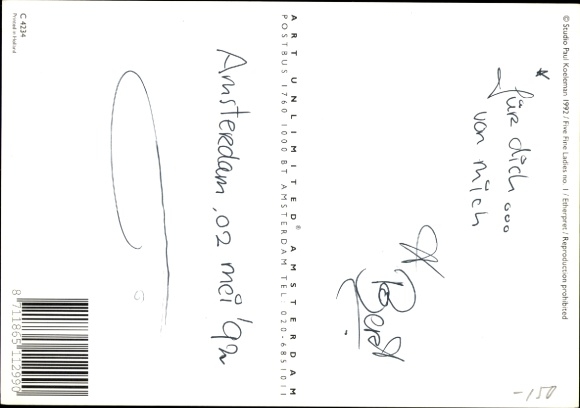 © Studio Paul Koeleman 1992 / Five Fine Ladies no. 1 / Etherpret / Reproduction prohibited
* für dich ...
von mich
ART UNLIMITED® AMSTERDAM
POSTBUS 1760 1000 BT AMSTERDAM TEL: 020-6851011
Amsterdam, 02 mei '92
C 4234
Printed in Holland
8 711865 112990
-150